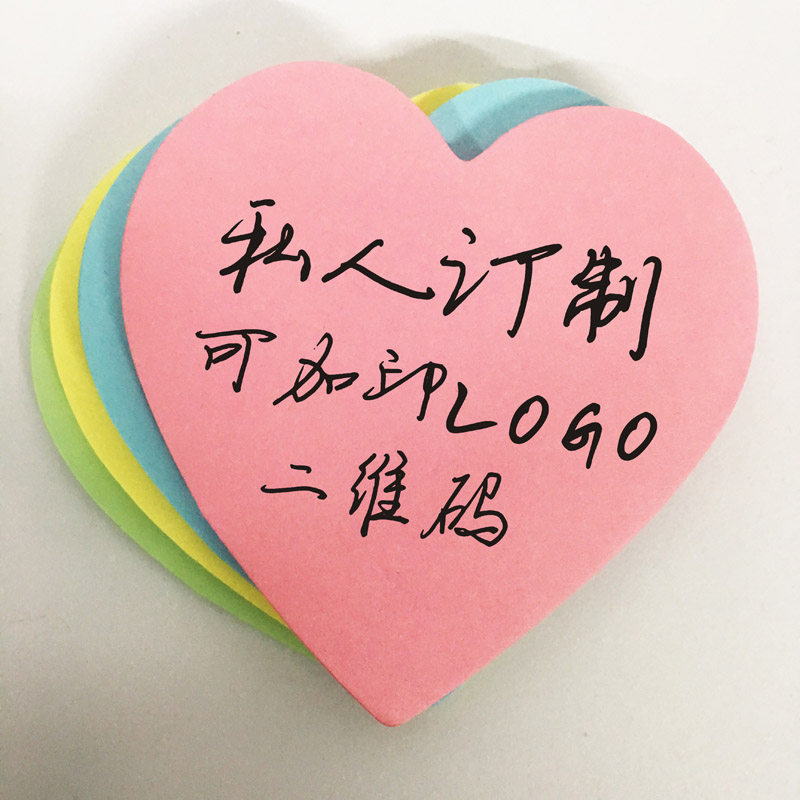 私人订制
可加印LOGO
二维码